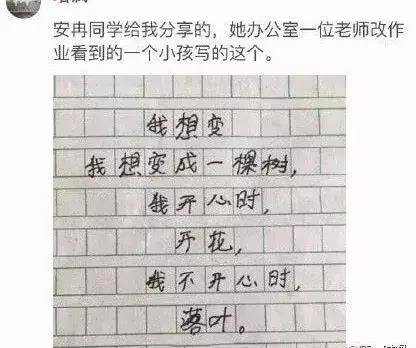 安冉同学给我分享的，她办公室一位老师改作
业看到的一个小孩写的这个。
我想变
我想变成一棵树，
我开心时，
开花，
我不开心时，
落叶。